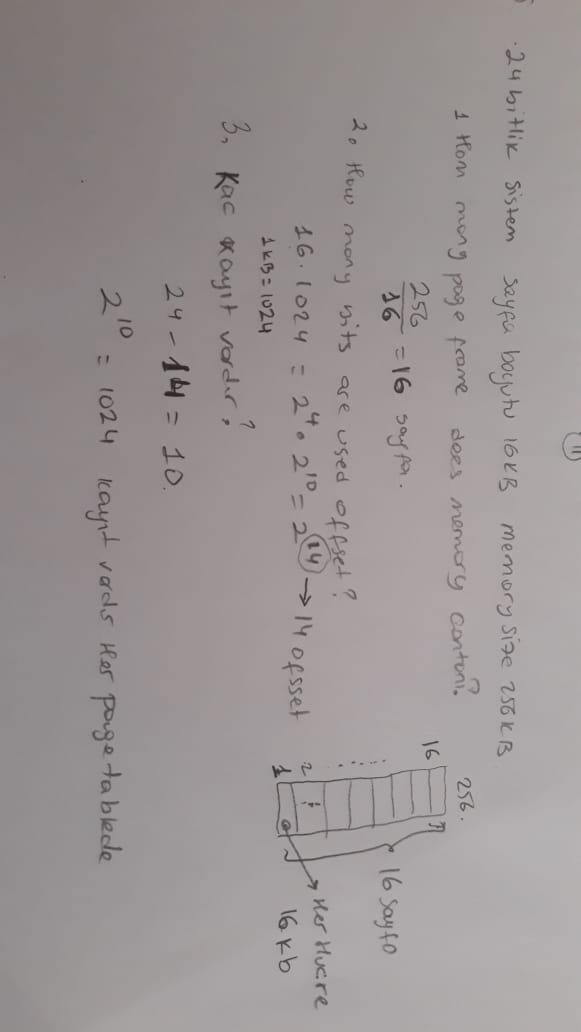 11
.24 bitlik sistem sayfa boyutu 16KB memory size 256KB
1 How many page frame does memory contani?
256/16 = 16 sayfa.
2. How many bits are used offset?
16.1024 = 2^4 . 2^10 = 2^14 → 14 ofsset
1KB = 1024
3. Kac kayıt vardır?
24 - 14 = 10.
2^10 = 1024 kayıt vards Her page tablede
256.
16
16 sayfa
2
1
Her Hucre
16 kb